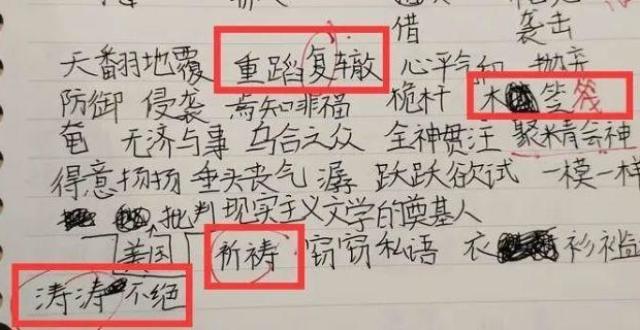 借 袭击
天翻地覆 重蹈复辙 心平气和 抛弃
防御 侵袭 焉知非福 桅杆 木 筏
奄 无济与事 乌合之众 全神贯注 聚精会神
得意扬扬 垂头丧气 潺 跃跃欲试 一模一样
批判现实主义文学的奠基人
美国 祈祷 窃窃私语 衣 衫褴
涛涛不绝